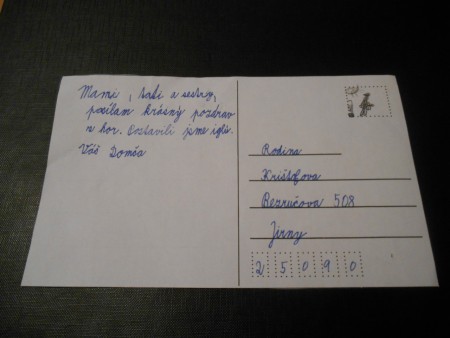 Mami, tati a sestry,
posílám krásný pozdrav
z hor. Postavili jsme iglú.
Váš Domča
Rodina
Krištofova
Bezručova 508
Jirny
25090